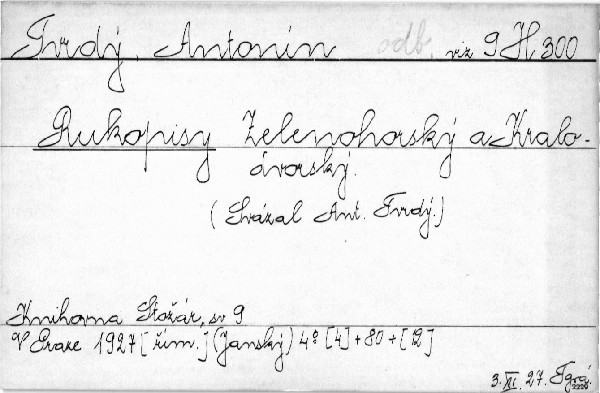 Tvrdý, Antonín odb. viz 9 H 300
Rukopisy Zelenohorský a Kralo-
dvorský.
(Svázal Ant. Tvrdý.)
Knihovna Stožár, sv. 9
V Praze 1927 [řím.] (Janský) 4° [4] + 80 + [12]
3. XI. 27.